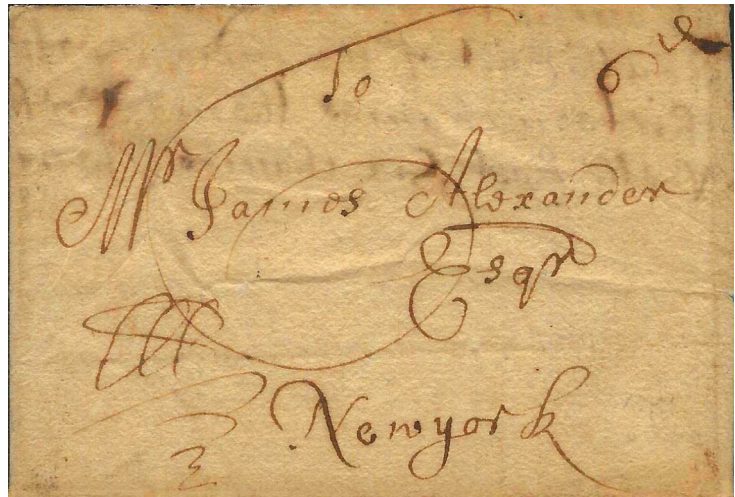 To
Mr James Alexander
Esqr
Newyork